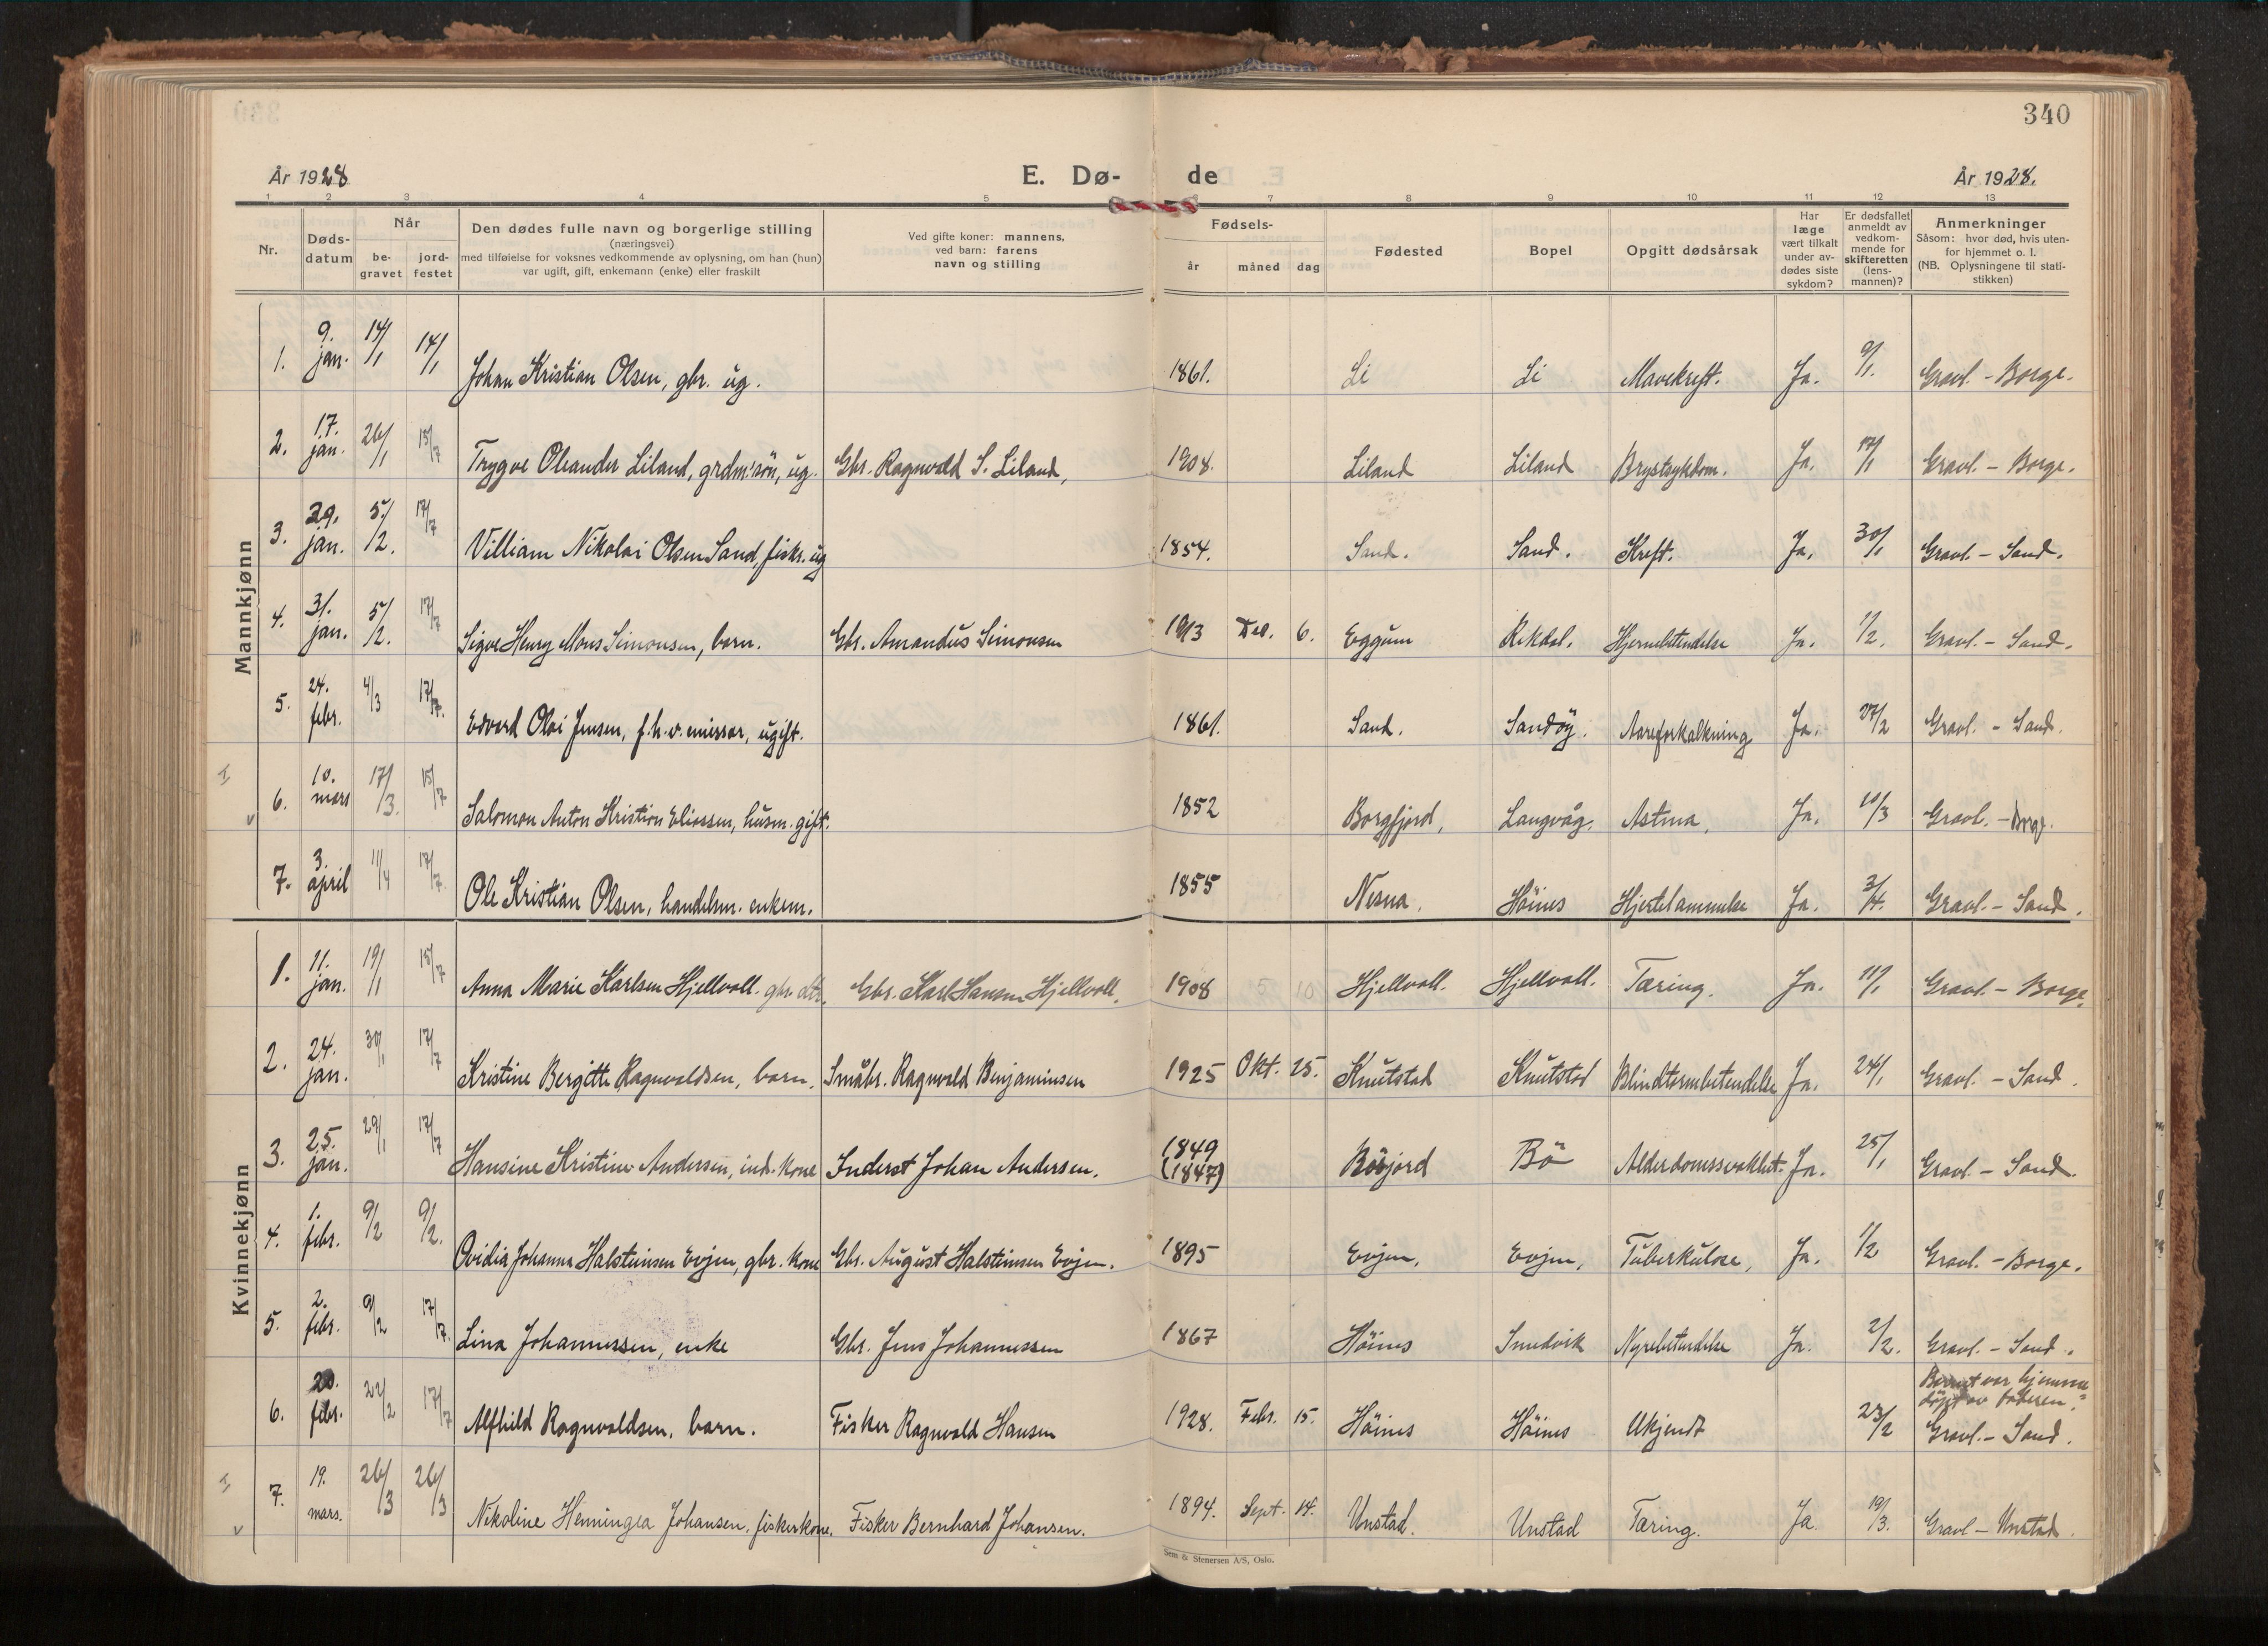 340
År 1928
E. Dø-
de
År 1928.
1 2 3 4 5 6 7 8 9 10 11 12 13
Nr.
Døds-
datum
Når
be-
gravet
jord-
festet
Den dødes fulle navn og borgerlige stilling
(næringsvei)
med tilføielse for voksnes vedkommende av oplysning, om han (hun)
var ugift, gift, enkemann (enke) eller fraskilt
Ved gifte koner: mannens,
ved barn: farens
navn og stilling
Fødsels-
år måned dag
Fødested
Bopel
Opgitt dødsårsak
Har
læge
vært tilkalt
under av-
dødes siste
sykdom?
Er dødsfallet
anmeldt av
vedkom-
mende for
skifteretten
(lens-
mannen)?
Anmerkninger
Såsom: hvor død, hvis uten-
for hjemmet o. l.
(NB. Oplysningene til stati-
stikken)
Mannkjønn
1. 9. jan. 14/1 14/1 Johan Kristian Olsen, gbr. ug. 1861. Li Li Mavekreft. Ja. 9/1. Gravl. - Borge.
2. 17. jan. 26/1 15/7 Trygve Oleander Liland, grdm.'søn, ug. Gbr. Ragnvald S. Liland, 1908. Liland Liland Brystsykdom. Ja. 17/1 Gravl. - Borge.
3. 29. jan. 5/2. 17/7 Villiam Nikolai Olsen Sand, fisk. ug 1854. Sand. Sand. Kreft. Ja. 30/1 Gravl. - Sand.
4. 31. jan. 5/2. 17/7 Sigve Henry Mons Simonsen, barn. Gbr. Amandus Simonsen 1913 Des. 6. Eggum Rekdal. Hjernebetendelse Ja. 1/2. Gravl. - Sand.
5. 24. febr. 4/3 17/7. Edvard Olai Jensen, f.h.v. emissær, ugift. 1861. Sand. Sandöy. Aareforkalkning Ja. 27/2 Gravl. - Sand.
6. 10. mars 17/3. 15/7 Salomon Anton Kristian Eliassen, husm. gift. 1852 Borgfjord, Langvåg. Astma, Ja. 10/3 Gravl. - Borge.
7. 3. april 11/4 17/7 Ole Kristian Olsen, handelsm. enkem. 1855 Nesna. Höines Hjertelammelse Ja. 3/4. Gravl. - Sand.
Kvinnekjønn
1. 11. jan. 19/1 15/7 Anna Marie Karlsen Hjellvoll. gbr. dtr. Gbr. Karl Hansen Hjellvoll. 1908 5 10 Hjellvoll. Hjellvoll. Tæring. Ja. 11/1 Gravl. - Borge.
2. 24. jan. 30/1 17/7 Kristine Bergitte Ragnvaldsen, barn. Småbr. Ragnvald Benjaminsen 1925 Okt. 25. Knutstad Knutstad Blindtarmbetendelse Ja. 24/1 Gravl. - Sand.
3. 25. jan. 29/1 17/7 Hansine Kristine Andersen, ind. kone Inderst Johan Andersen. 1849
(1847) Böjord Bö Alderdomssvakhet. Ja. 25/1 Gravl. - Sand.
4. 1. febr. 9/2 9/2. Ovidia Johanna Halsteinsen Evjen, gbr. kone Gbr. August Halsteinsen Evjen. 1895 Evjen, Evjen, Tuberkulose, Ja. 1/2 Gravl. - Borge.
5. 2. febr. 9/2 17/7. Lina Johannessen, enke Gbr. Jens Johannessen 1867 Höines Smedvik Nyrebetendelse Ja. 2/2. Gravl. - Sand.
Barnet var hjemme=
döpt av faderen.
6. 20. febr. 22/2 17/7 Alfhild Ragnvaldsen. barn. Fisker Ragnvald Hansen 1928. Febr. 15. Höines Höines Ukjendt 23/2 Gravl. - Sand.
7. 19. mars. 26/3 26/3 Nikoline Henningea Johansen. fiskerkone. Fisker Bernhard Johansen. 1894. Sept. 14. Unstad. Unstad Tæring. Ja 19/3. Gravl - Unstad.
Sem & Stenersen A/S, Oslo.